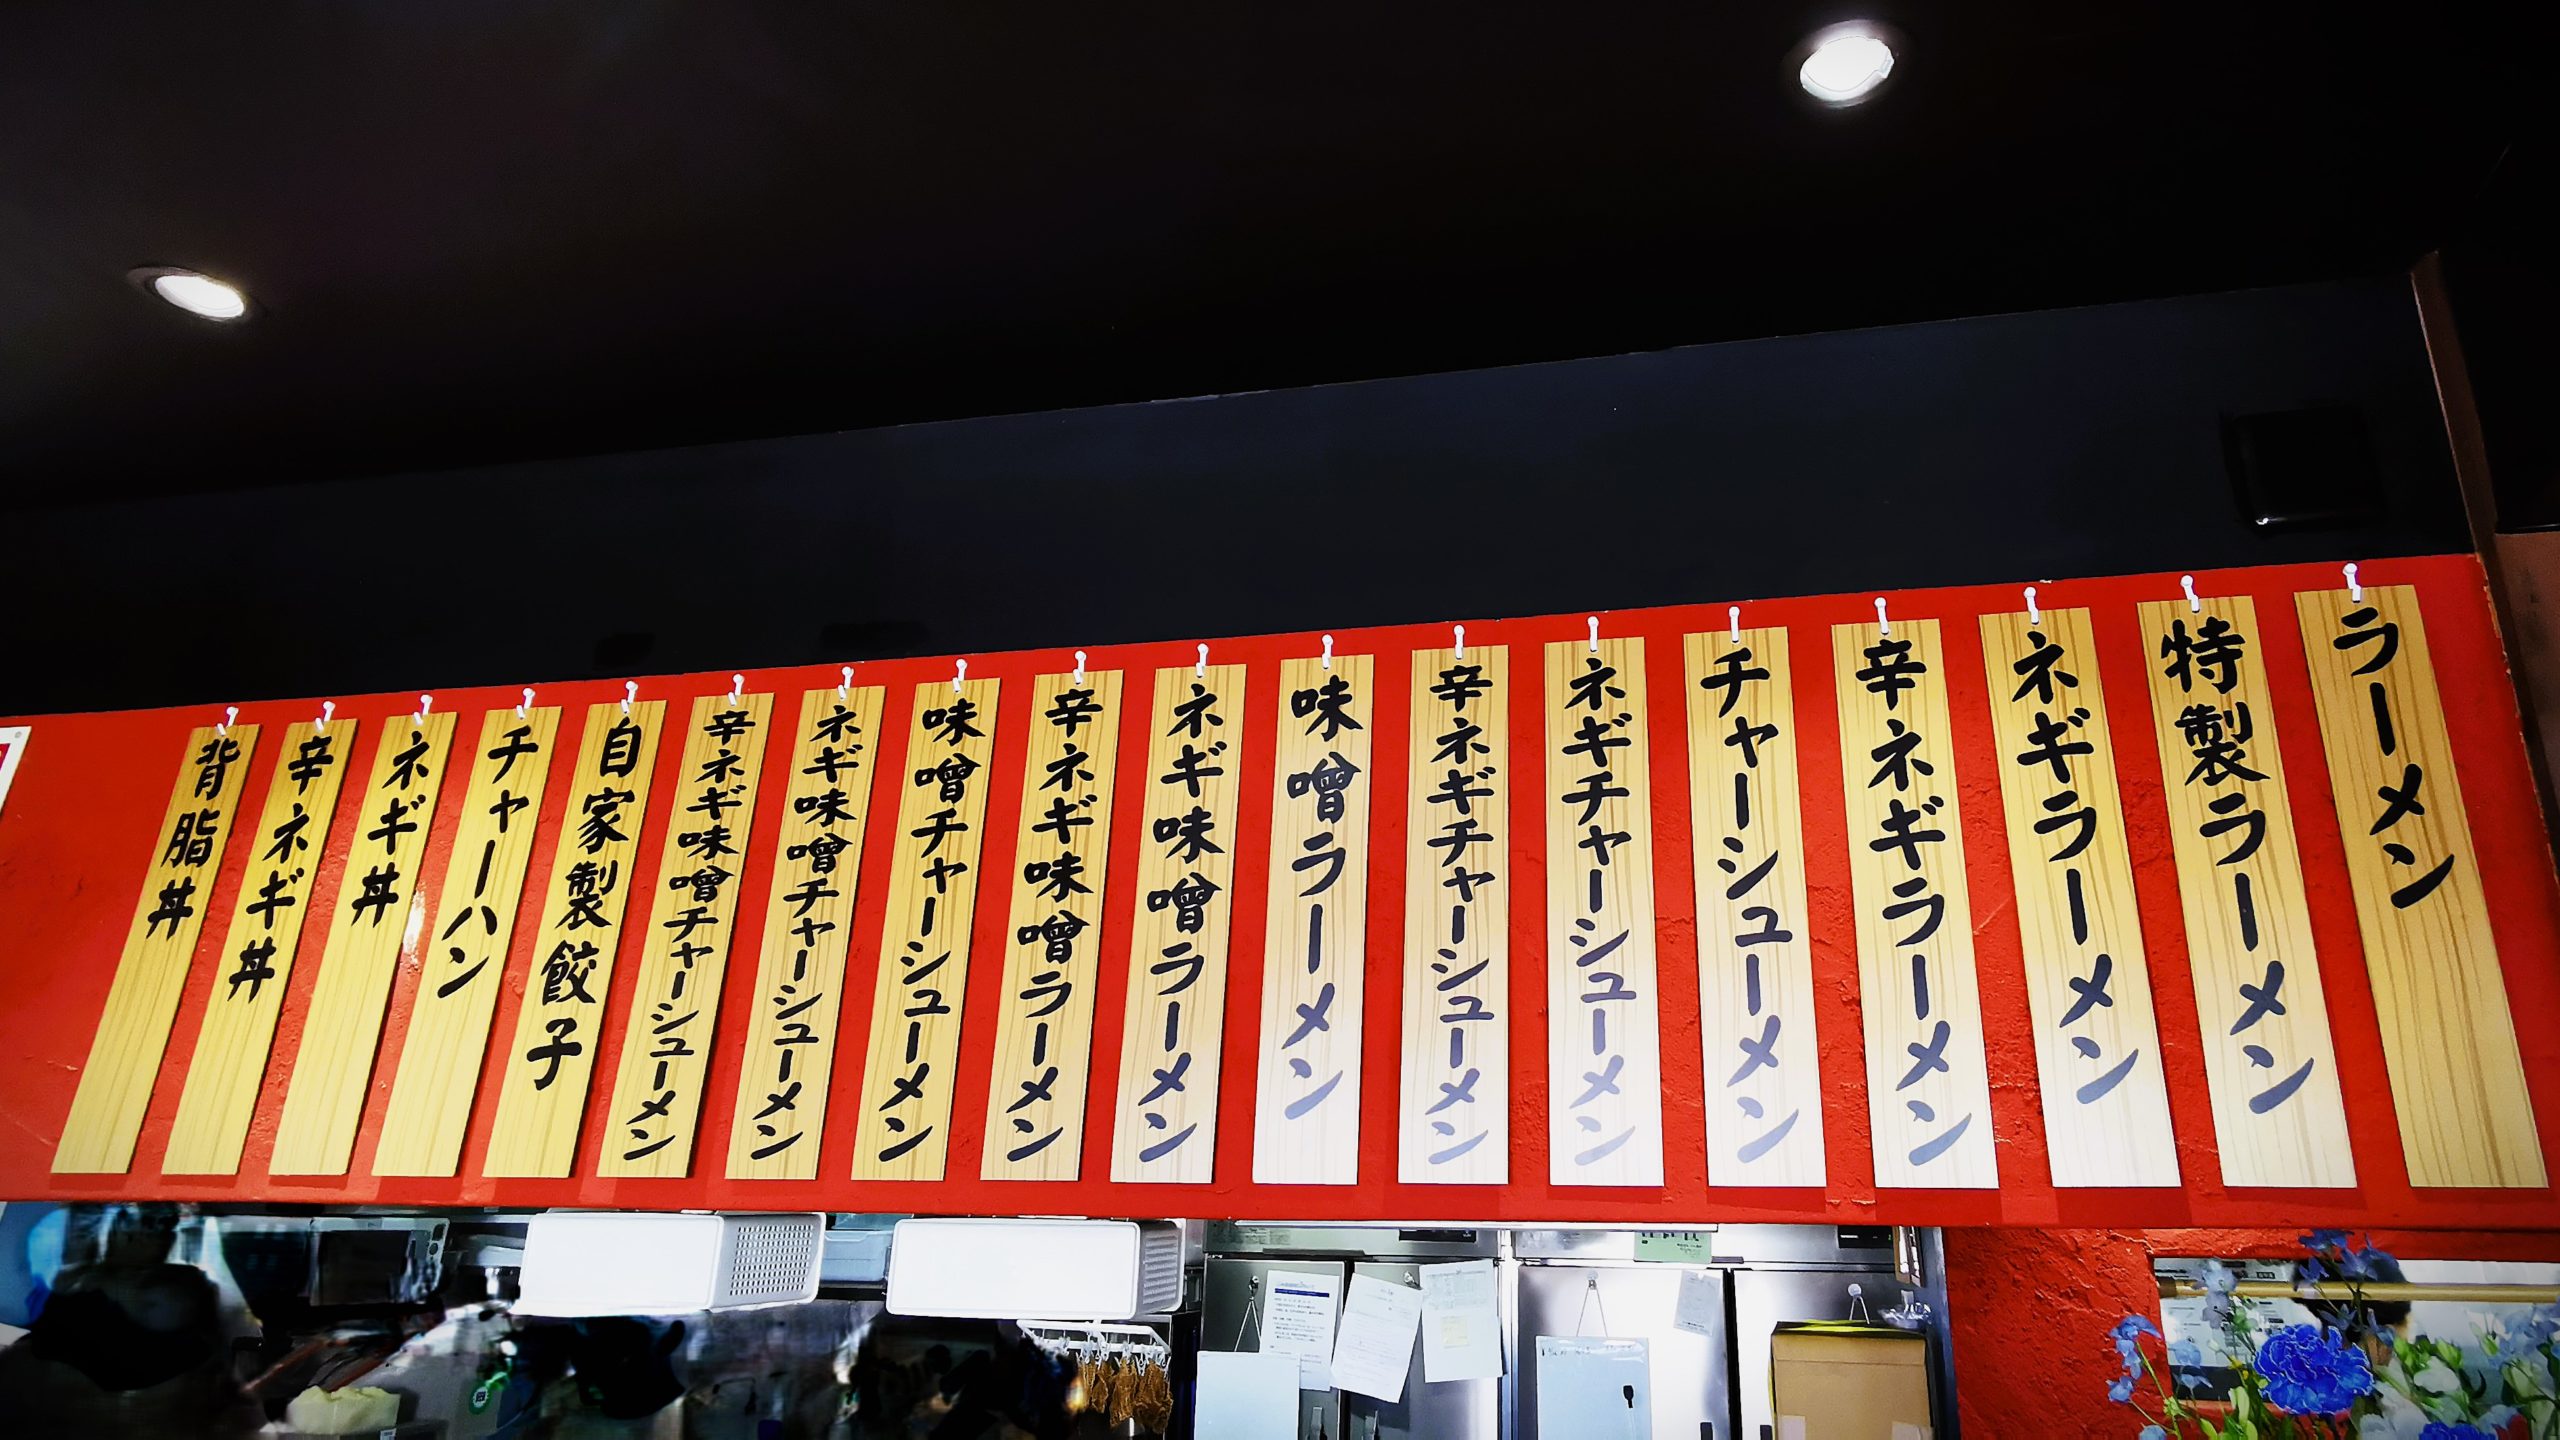 ラーメン
特製ラーメン
ネギラーメン
辛ネギラーメン
チャーシューメン
ネギチャーシューメン
辛ネギチャーシューメン
味噌ラーメン
ネギ味噌ラーメン
辛ネギ味噌ラーメン
味噌チャーシューメン
ネギ味噌チャーシューメン
辛ネギ味噌チャーシューメン
自家製餃子
チャーハン
ネギ丼
辛ネギ丼
背脂丼